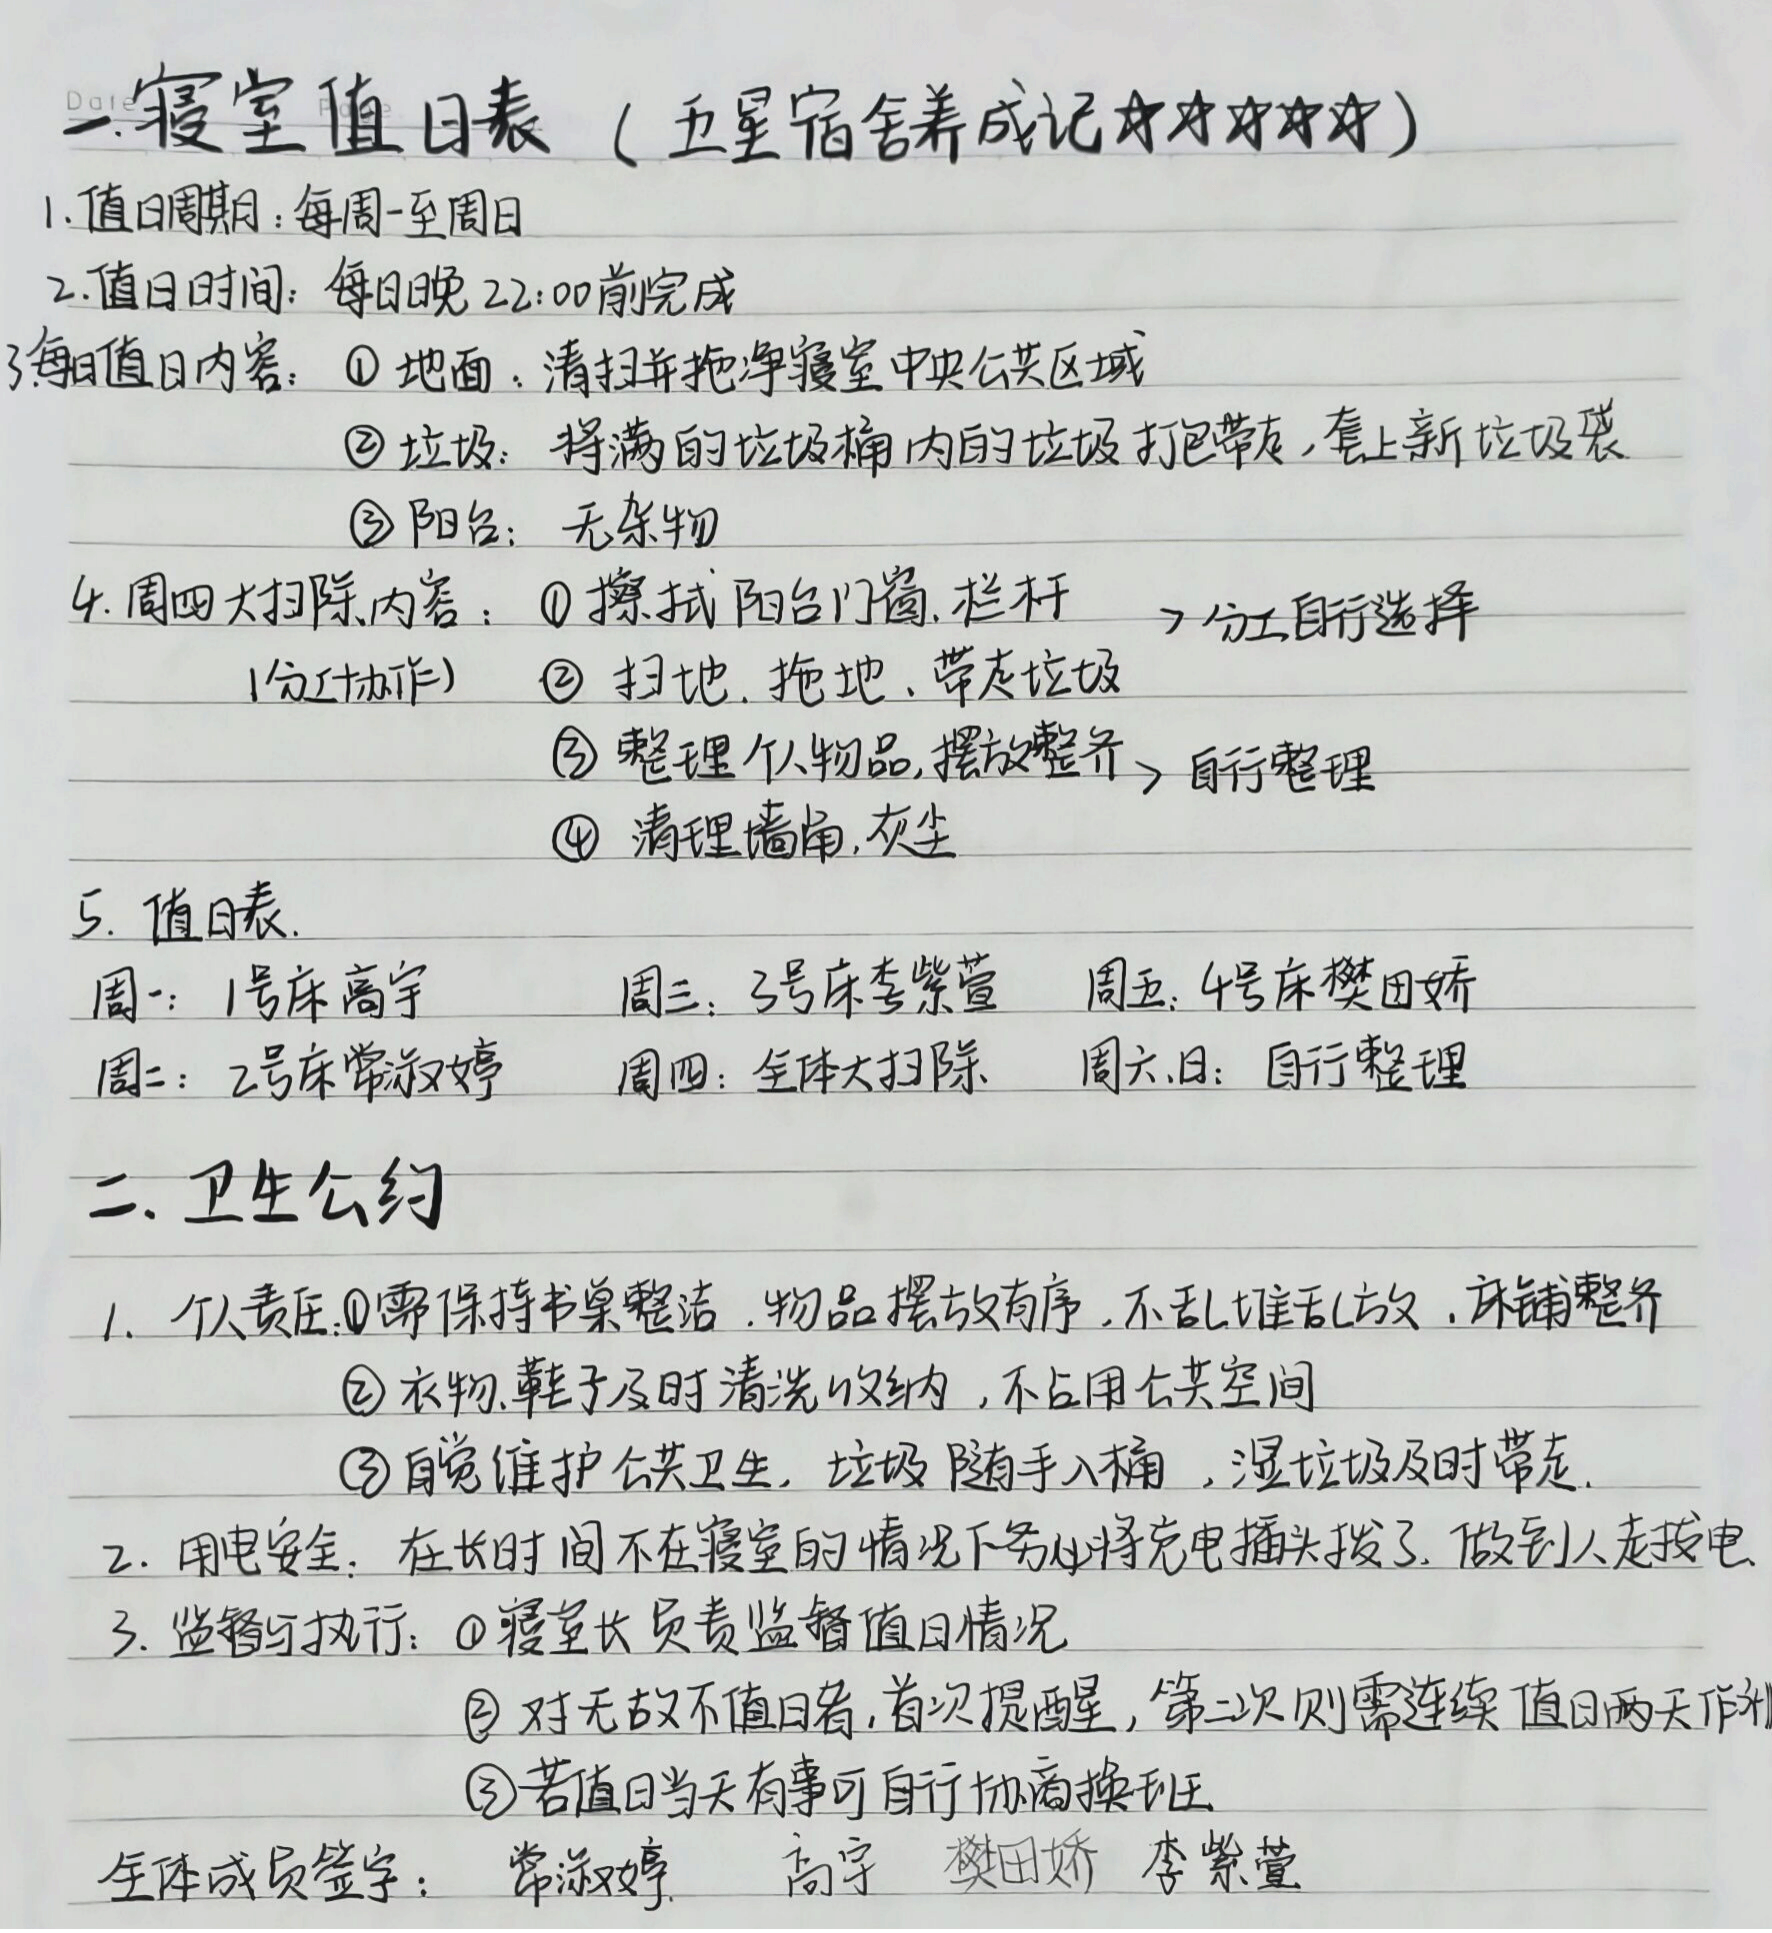 Date
一.寝室值日表（五星宿舍养成记☆☆☆☆☆）
1.值日周期:每周一至周日
2.值日时间: 每日晚22:00前完成
3.每日值日内容: ①地面:清扫并拖净寝室中央公共区域
②垃圾: 将满的垃圾桶内的垃圾打包带走,套上新垃圾袋
③阳台: 无杂物
4.周四大扫除内容: ①擦拭阳台门窗、栏杆 > 分工自行选择
(分工协作) ②扫地、拖地、带走垃圾
③整理个人物品,摆放整齐 > 自行整理
④清理墙角,灰尘
5. 值日表.
周一: 1号床高宇 周三: 3号床李紫萱 周五: 4号床樊田娇
周二: 2号床常淑婷 周四: 全体大扫除 周六、日: 自行整理
二.卫生公约
1. 个人责任:①需保持书桌整洁,物品摆放有序,不乱堆乱放,床铺整齐
②衣物、鞋子及时清洗收纳,不占用公共空间
③自觉维护公共卫生,垃圾随手入桶,湿垃圾及时带走.
2. 用电安全: 在长时间不在寝室的情况下务必将充电插头拔了.做到人走拔电
3. 监督与执行: ①寝室长负责监督值日情况
②对无故不值日者,首次提醒,第二次则需连续值日两天作
③若值日当天有事可自行协商换班
全体成员签字: 常淑婷 高宇 樊田娇 李紫萱